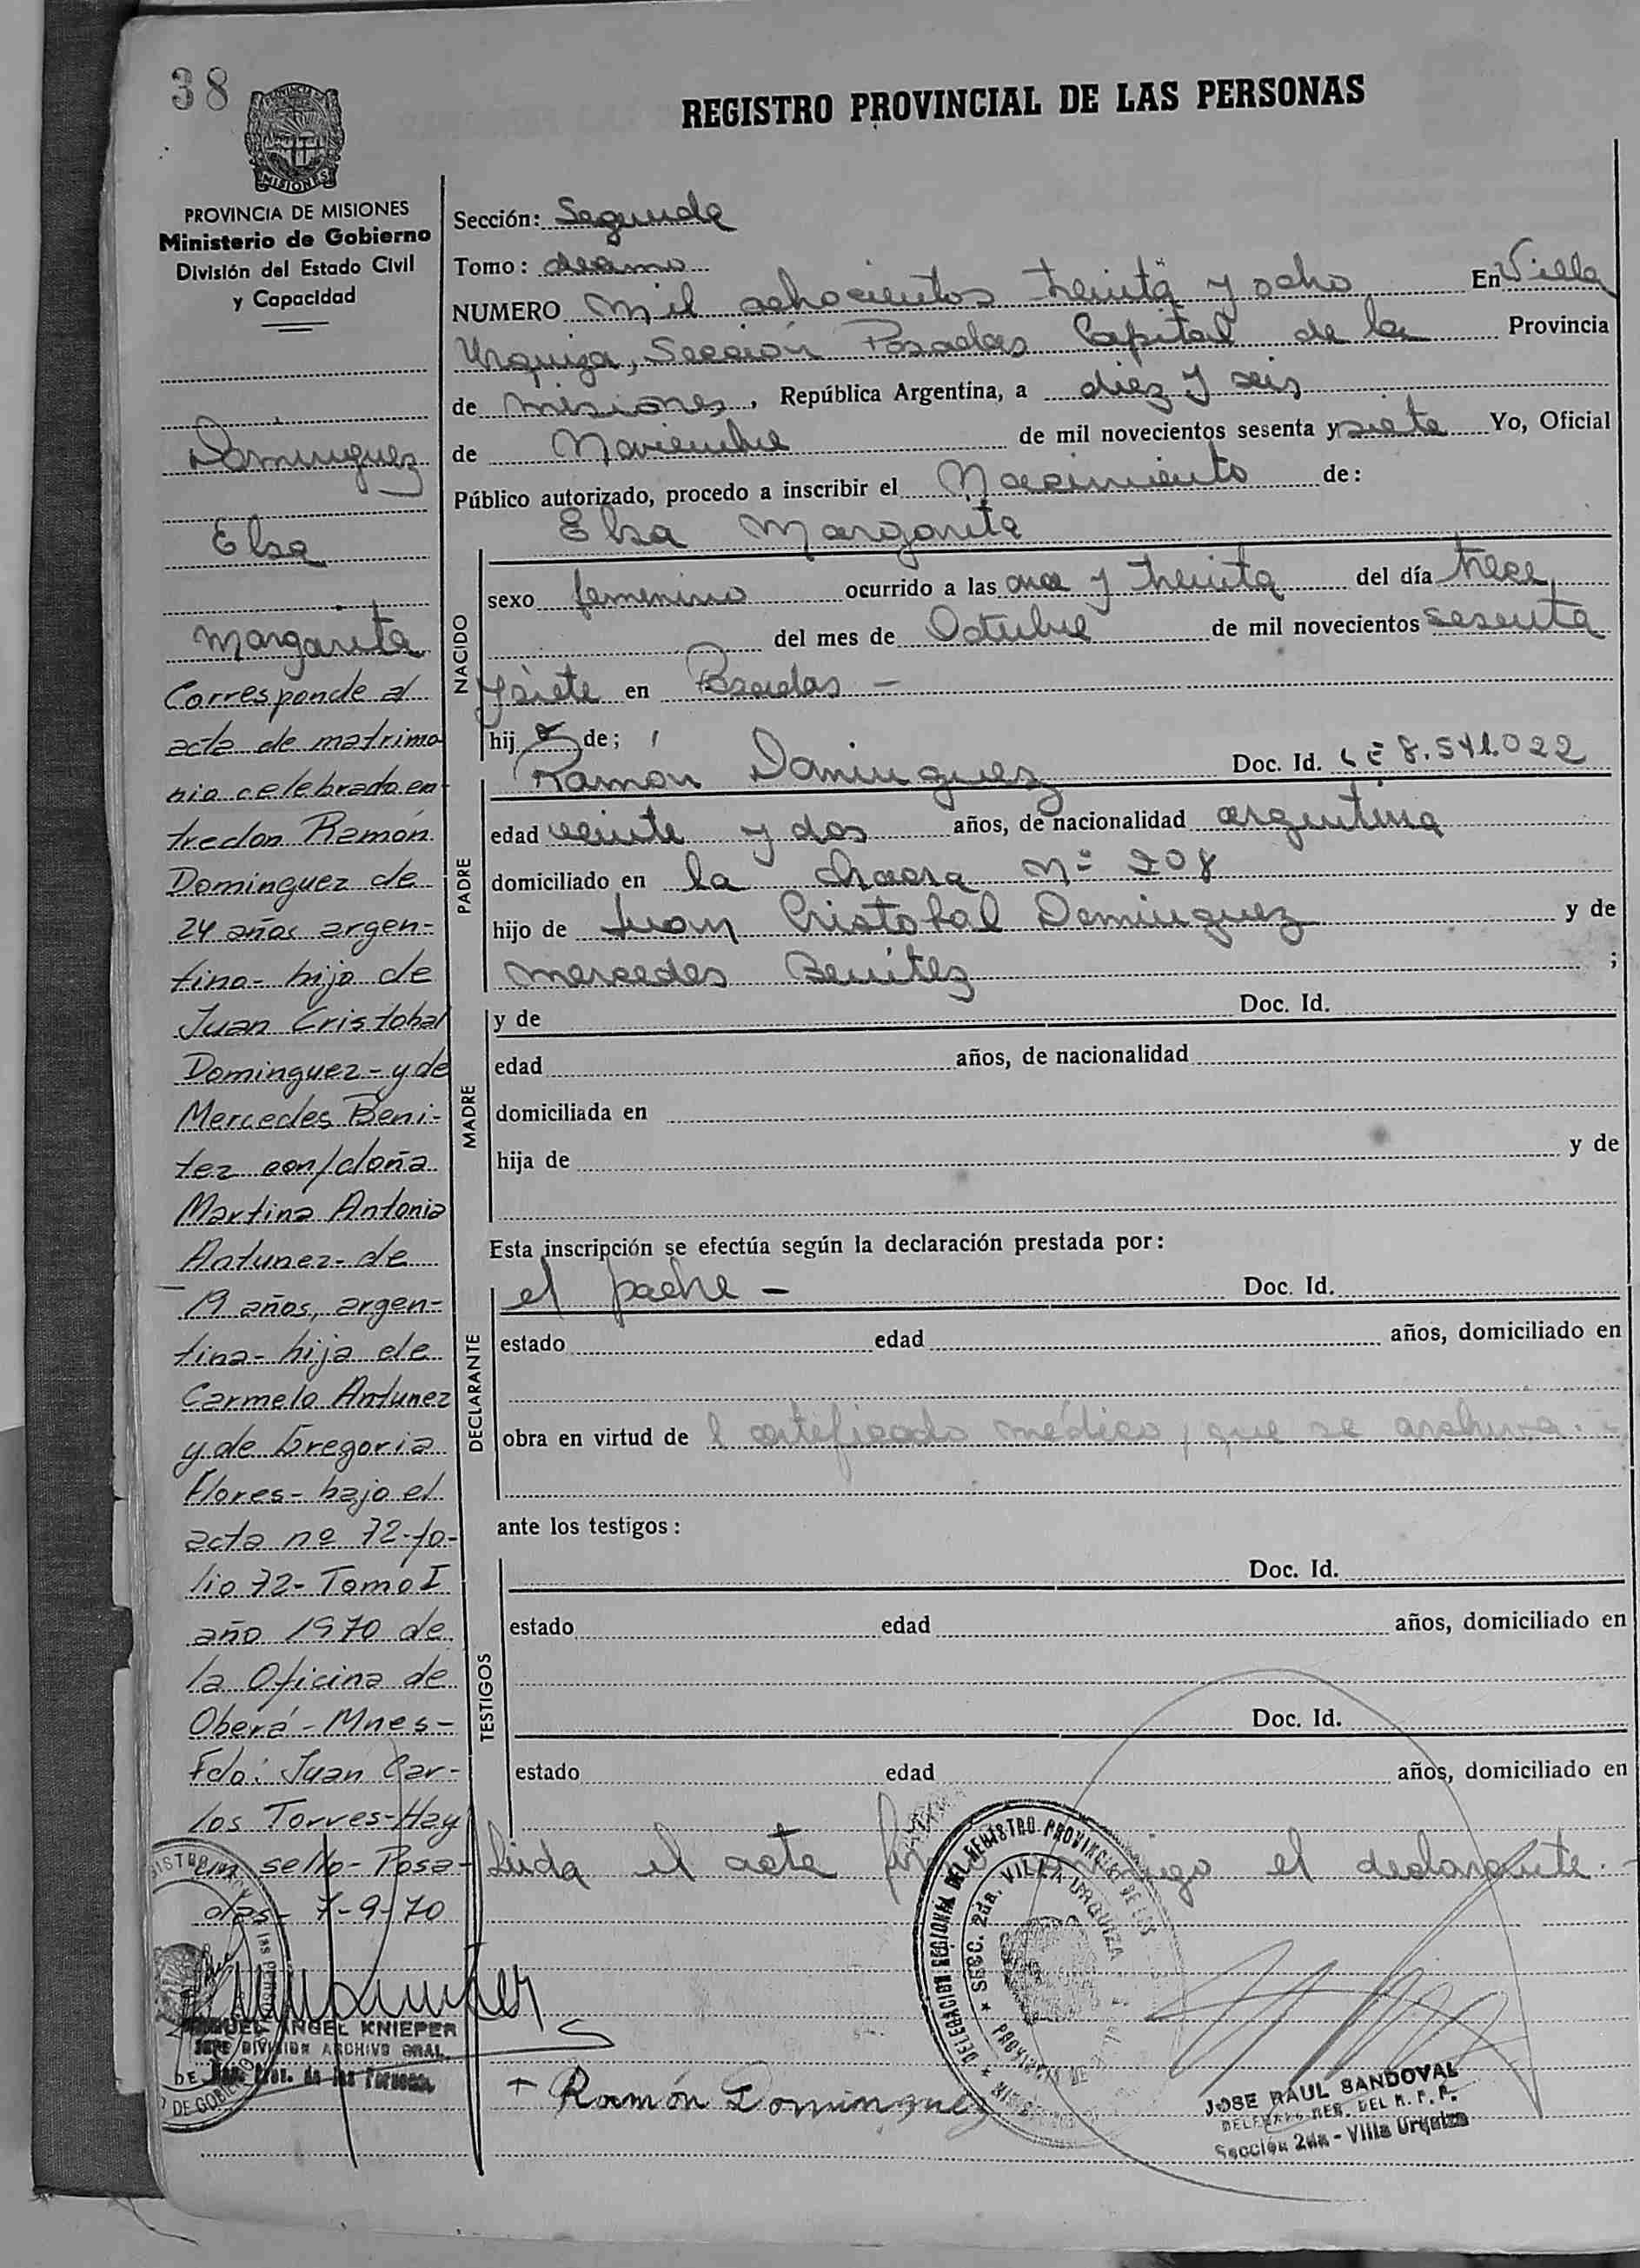 38
REGISTRO PROVINCIAL DE LAS PERSONAS
PROVINCIA DE MISIONES
MISIONES
PROVINCIA DE MISIONES
Ministerio de Gobierno
División del Estado Civil
y Capacidad
Dominguez
Elsa
Margarita
Corresponde al
acta de matrimo
nio celebrado en-
tre don Ramón
Dominguez de
24 años argen-
tino- hijo de
Juan Cristobal
Dominguez - y de
Mercedes Beni-
tez con/doña
Martina Antonia
Antunez- de
19 años, argen-
tina- hija de
Carmelo Antunez
y de Gregoria
Flores- bajo el
acta nº 72-fo-
lio 72- Tomo I
año 1970 de
la Oficina de
Oberá - Mnes-
Fdo: Juan Car-
los Torres-Hay
un sello- Posa-
das- 7-9-70
MIGUEL ANGEL KNIEPER
JEFE DIVISION ARCHIVO GRAL.
Sección: Segunda
Tomo: decimo
NUMERO Mil ochocientos treinta y ocho En Villa
Urquiza, Sección Posadas Capital de la Provincia
de Misiones, República Argentina, a diez y seis
de Noviembre de mil novecientos sesenta y siete Yo, Oficial
Público autorizado, procedo a inscribir el Nacimiento de:
Elsa Margarita
NACIDO
sexo femenino ocurrido a las once y treinta del día trece
del mes de Octubre de mil novecientos sesenta
y siete en Posadas -
hij a de;
PADRE
Ramón Dominguez Doc. Id. LE 8.541.022
edad veinte y dos años, de nacionalidad argentina
domiciliado en la chacra Nº 208
hijo de Juan Cristobal Dominguez y de
Mercedes Benitez ;
MADRE
y de Doc. Id.
edad años, de nacionalidad
domiciliada en
hija de y de
Esta inscripción se efectúa según la declaración prestada por:
DECLARANTE
el padre - Doc. Id.
estado edad años, domiciliado en
obra en virtud de l certificado médico, que se archiva.-
ante los testigos:
TESTIGOS
Doc. Id.
estado edad años, domiciliado en
Doc. Id.
estado edad años, domiciliado en
Leida el acta conmigo el declarante.-
DELEGACION REGIONAL DEL REGISTRO PROVINCIAL DE LAS
SECC. 2da. VILLA URQUIZA
Ramón Dominguez
JOSE RAUL SANDOVAL
Sección 2da - Villa Urquiza